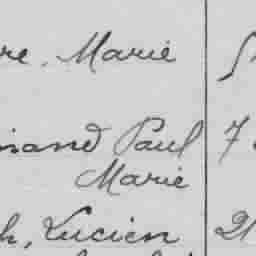 re, Marie
nand Paul 7
Marie
h, Lucien 21